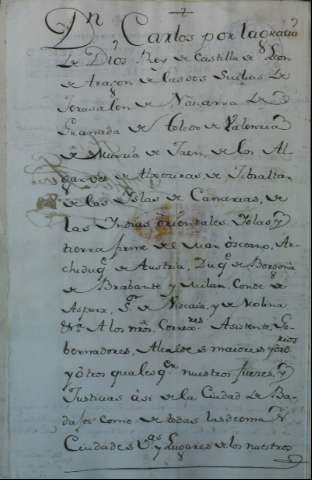 Dn Carlos por la gracia
de Dios Rey de Castilla de Leon
de Aragon de las dos Sicilias de
Jerusalen de Navarra de
Granada de Toledo de Valencia
de Murcia de Jaen, de los Al
garves de Algeciras de Gibraltar
de las Yslas de Canarias, de
las Yndias orientales Yslas y
tierra firme del mar oceano, Ar
chiduqe de Austria, Duqe de Borgoña
de Brabante y Milan, Conde de
Aspurg, Sr de Vizcaia, y de Molina
A los mros Corregres Asistente, Go
bernadores, Alcaldes maiores y ordrios
y otros qualesqra nuestros Jueces, y
Justicias asi de la Ciudad de Ba
dajoz como de todas las demas
Ciudades Vas y Lugares de los nuestros